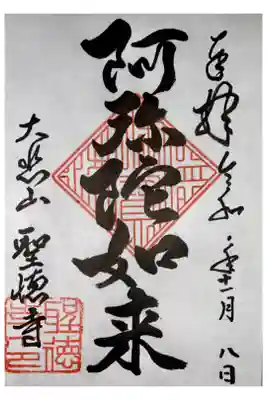 奉拝 令和 年十一月 八日
阿弥陀如来
大悲山 聖徳寺
聖徳
寺印